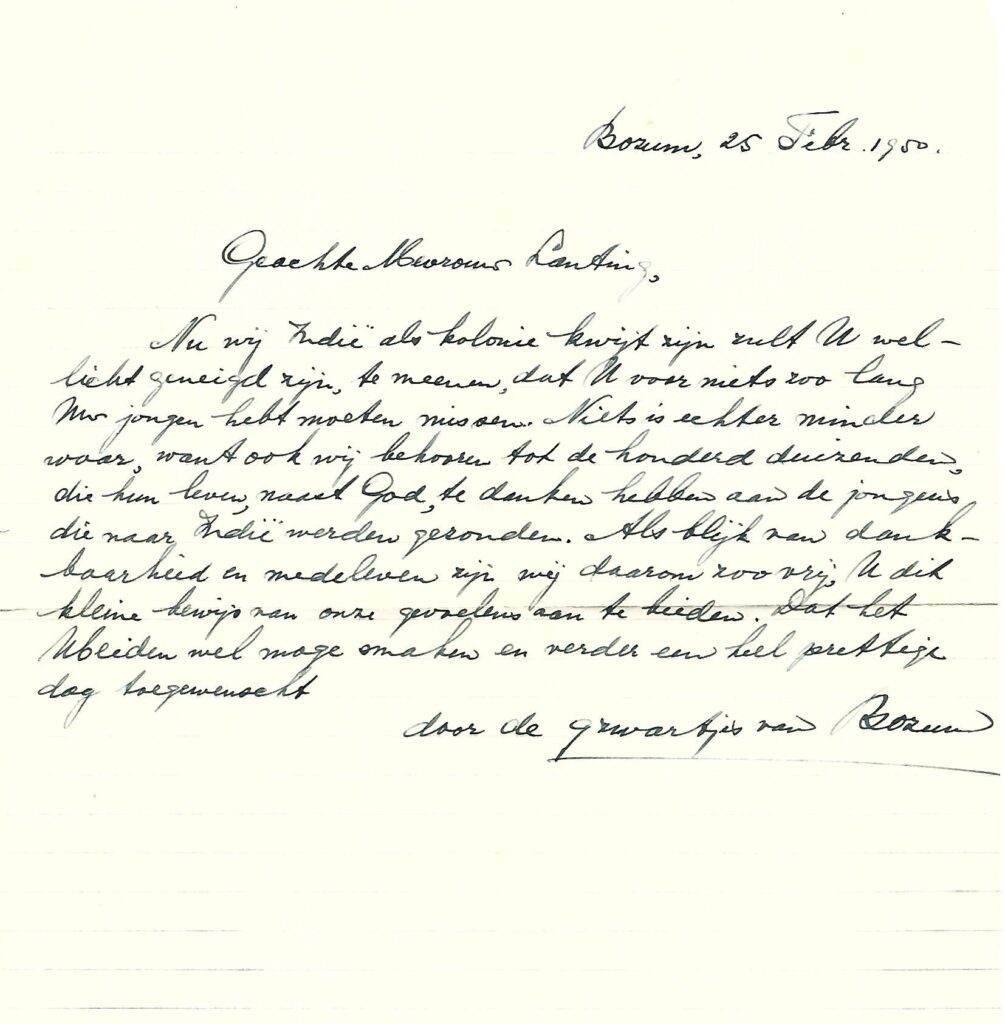 Bozum, 25 Febr. 1950.
Geachte Mevrouw Lanting,
Nu wij Indië als kolonie kwijt zijn zult U wel-
licht geneigd zijn, te meenen, dat U voor niets zoo lang
Uw jongen hebt moeten missen. Niets is echter minder
waar, want ook wij behooren tot de honderd duizenden,
die hun leven, naast God, te danken hebben aan de jongens,
die naar Indië werden gezonden. Als blijk van dank-
baarheid en medeleven zijn wij daarom zoo vrij, U dit
kleine bewijs van onze gevoelens aan te bieden. Dat het
U beiden wel moge smaken en verder een heel prettige
dag toegewenscht
door de zwartjes van Bozum